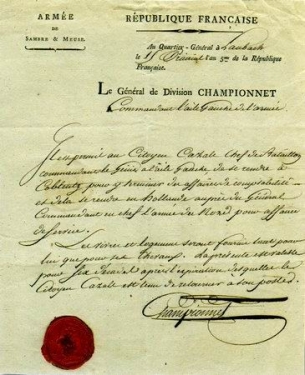 ARMÉE
DE
SAMBRE & MEUSE.
RÉPUBLIQUE FRANÇAISE
Au Quartier-Général à
le 15 Prairial an 5me de la République
Française.
Le Général de Division CHAMPIONNET
Commandant l'aile Gauche de l'armée
Il est permis au Citoyen Cazale Chef de Bataillon
commandant le Génie à l'aile Gauche, de se rendre à
Coblentz pour y terminer des affaires de comptabilité
et de là se rendre en hollande auprès du Général
Commandant en chef L'armée du Nord pour affaires
de Service.
Les vivres et logement seront fournis tant pour
lui que pour ses chevaux. la présente est valable
pour six après l'expiration desquelles le
Citoyen Cazale est tenu de retourner à son poste.
Championnet